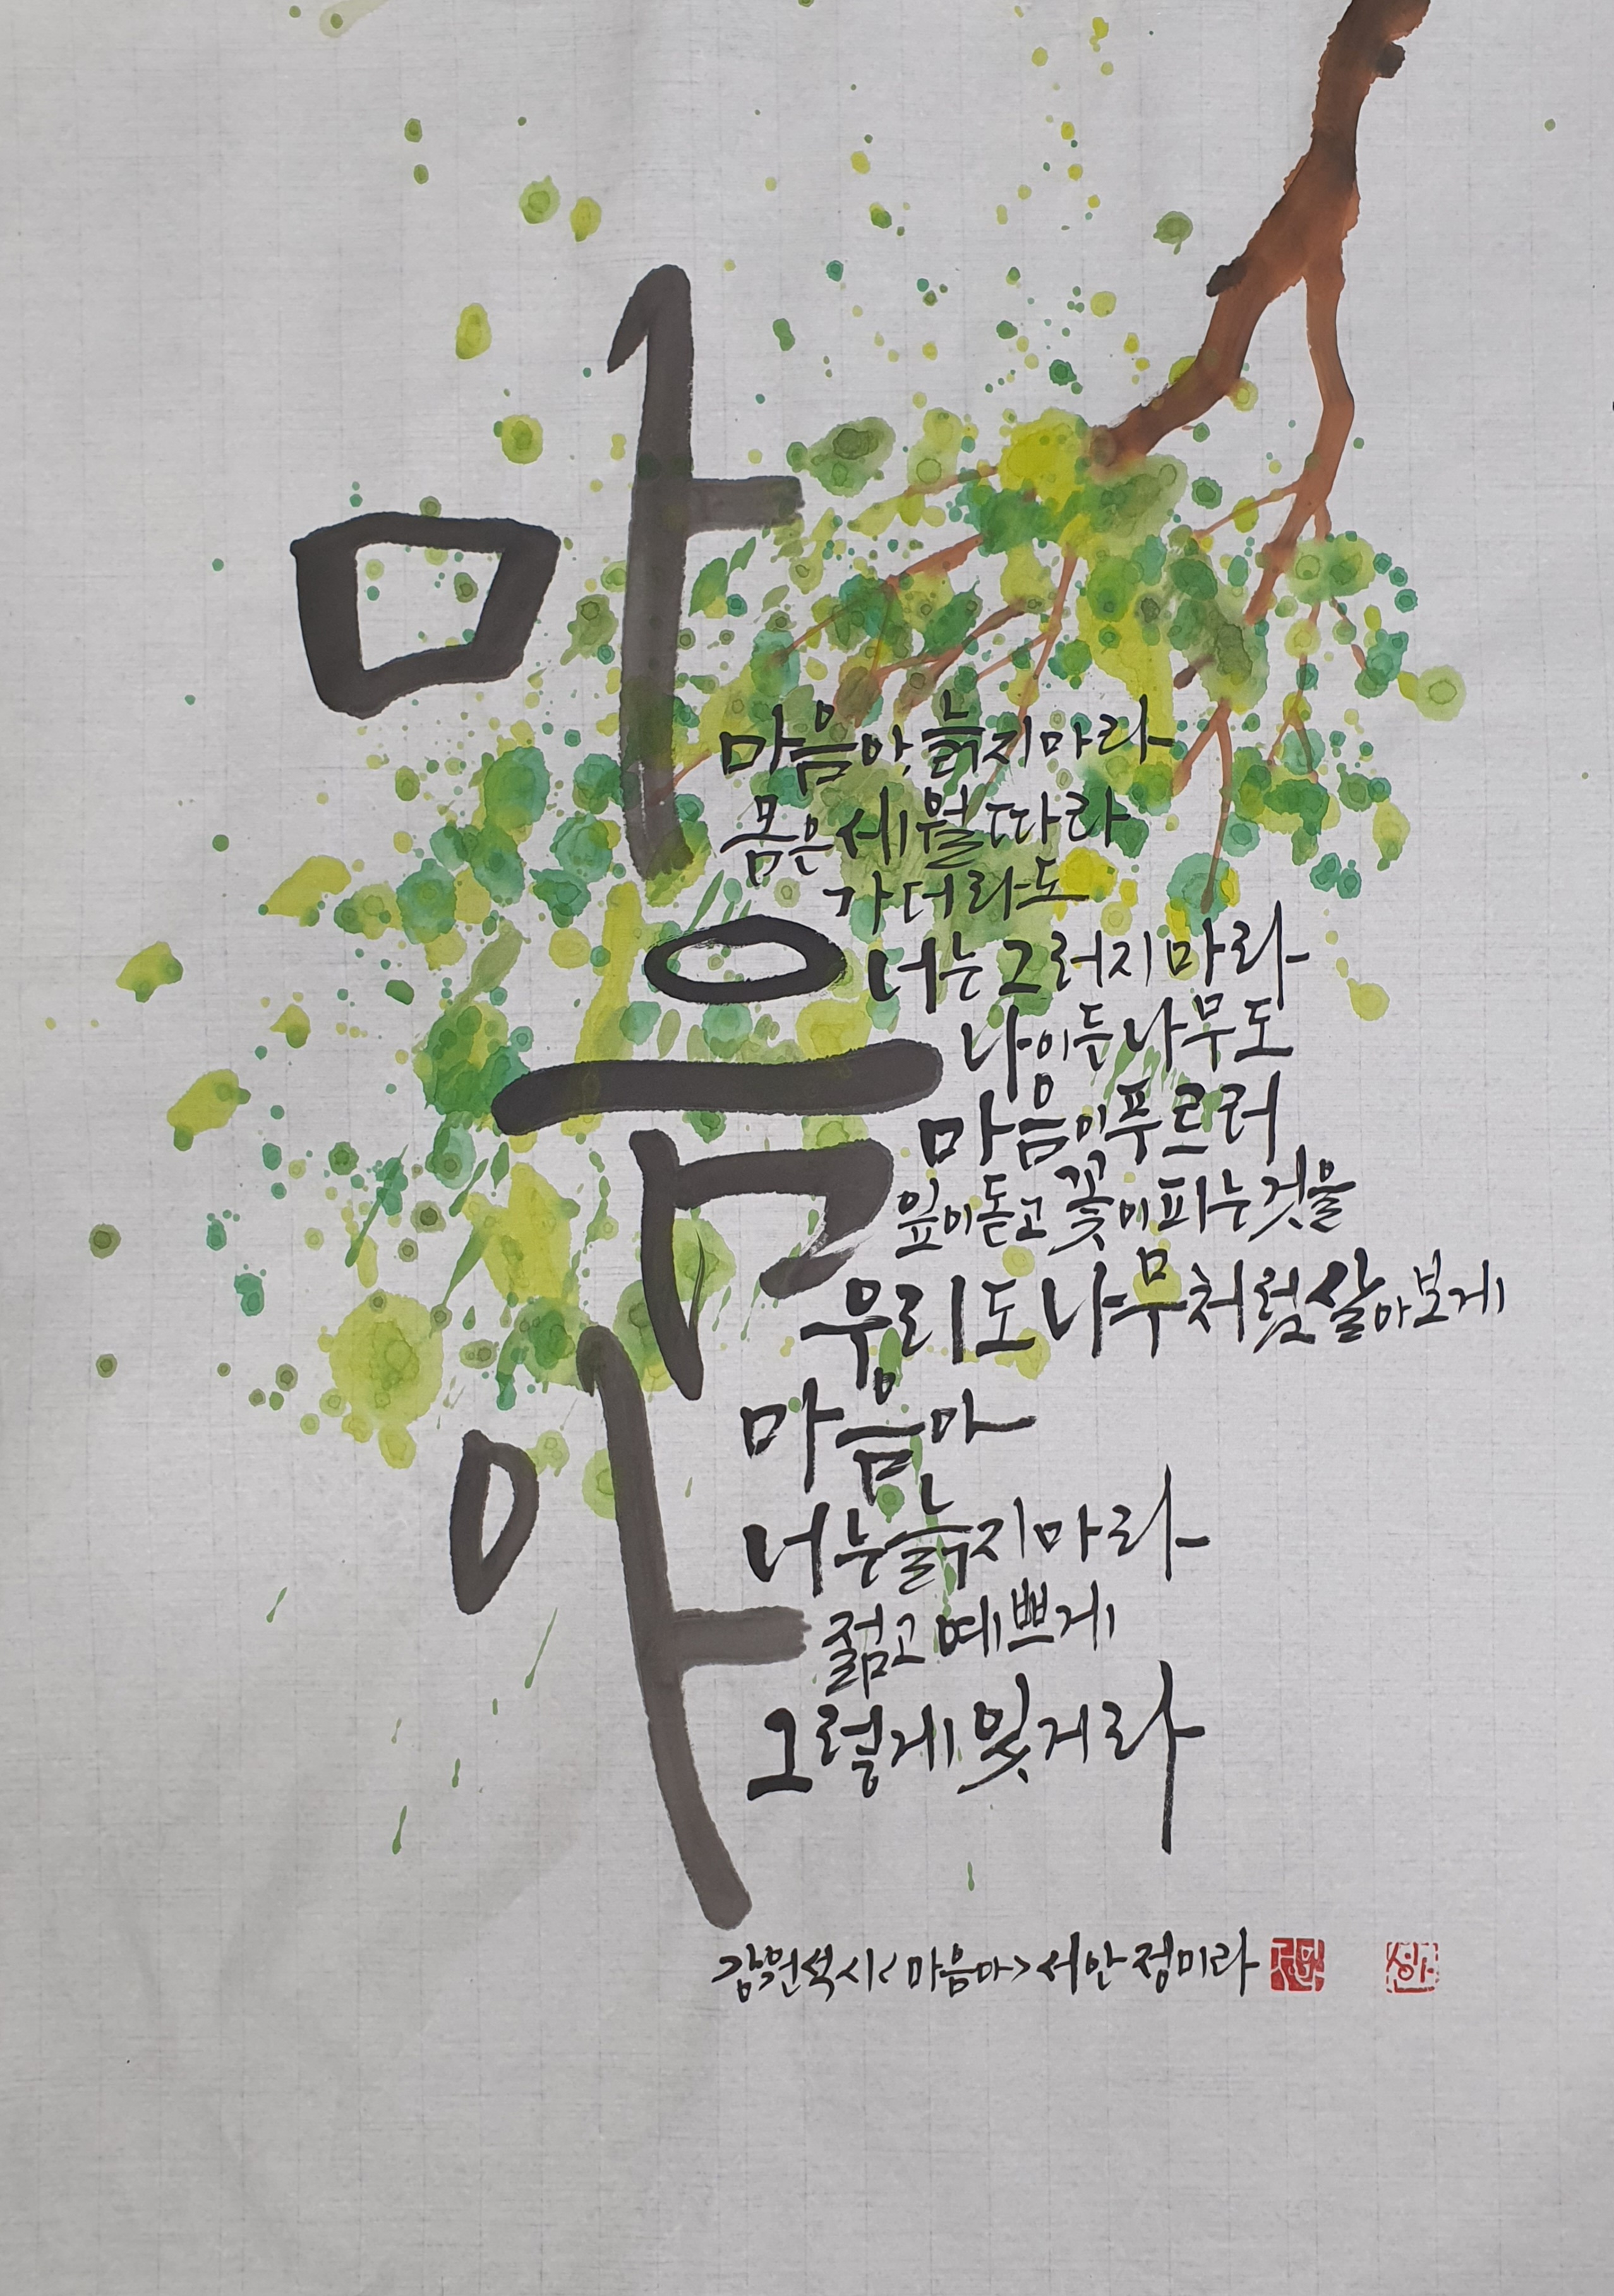 마음아
마음아, 늙지마라
몸은 세월따라
가더라도
너는 그러지마라
나이든 나무도
마음이 푸르러
잎이 돋고 꽃이 피는 것을
우리도 나무처럼 살아보게
마음아
너는 늙지마라
젊고 예쁘게
그렇게 있거라
강원석 시 <마음아> 서안 정미라